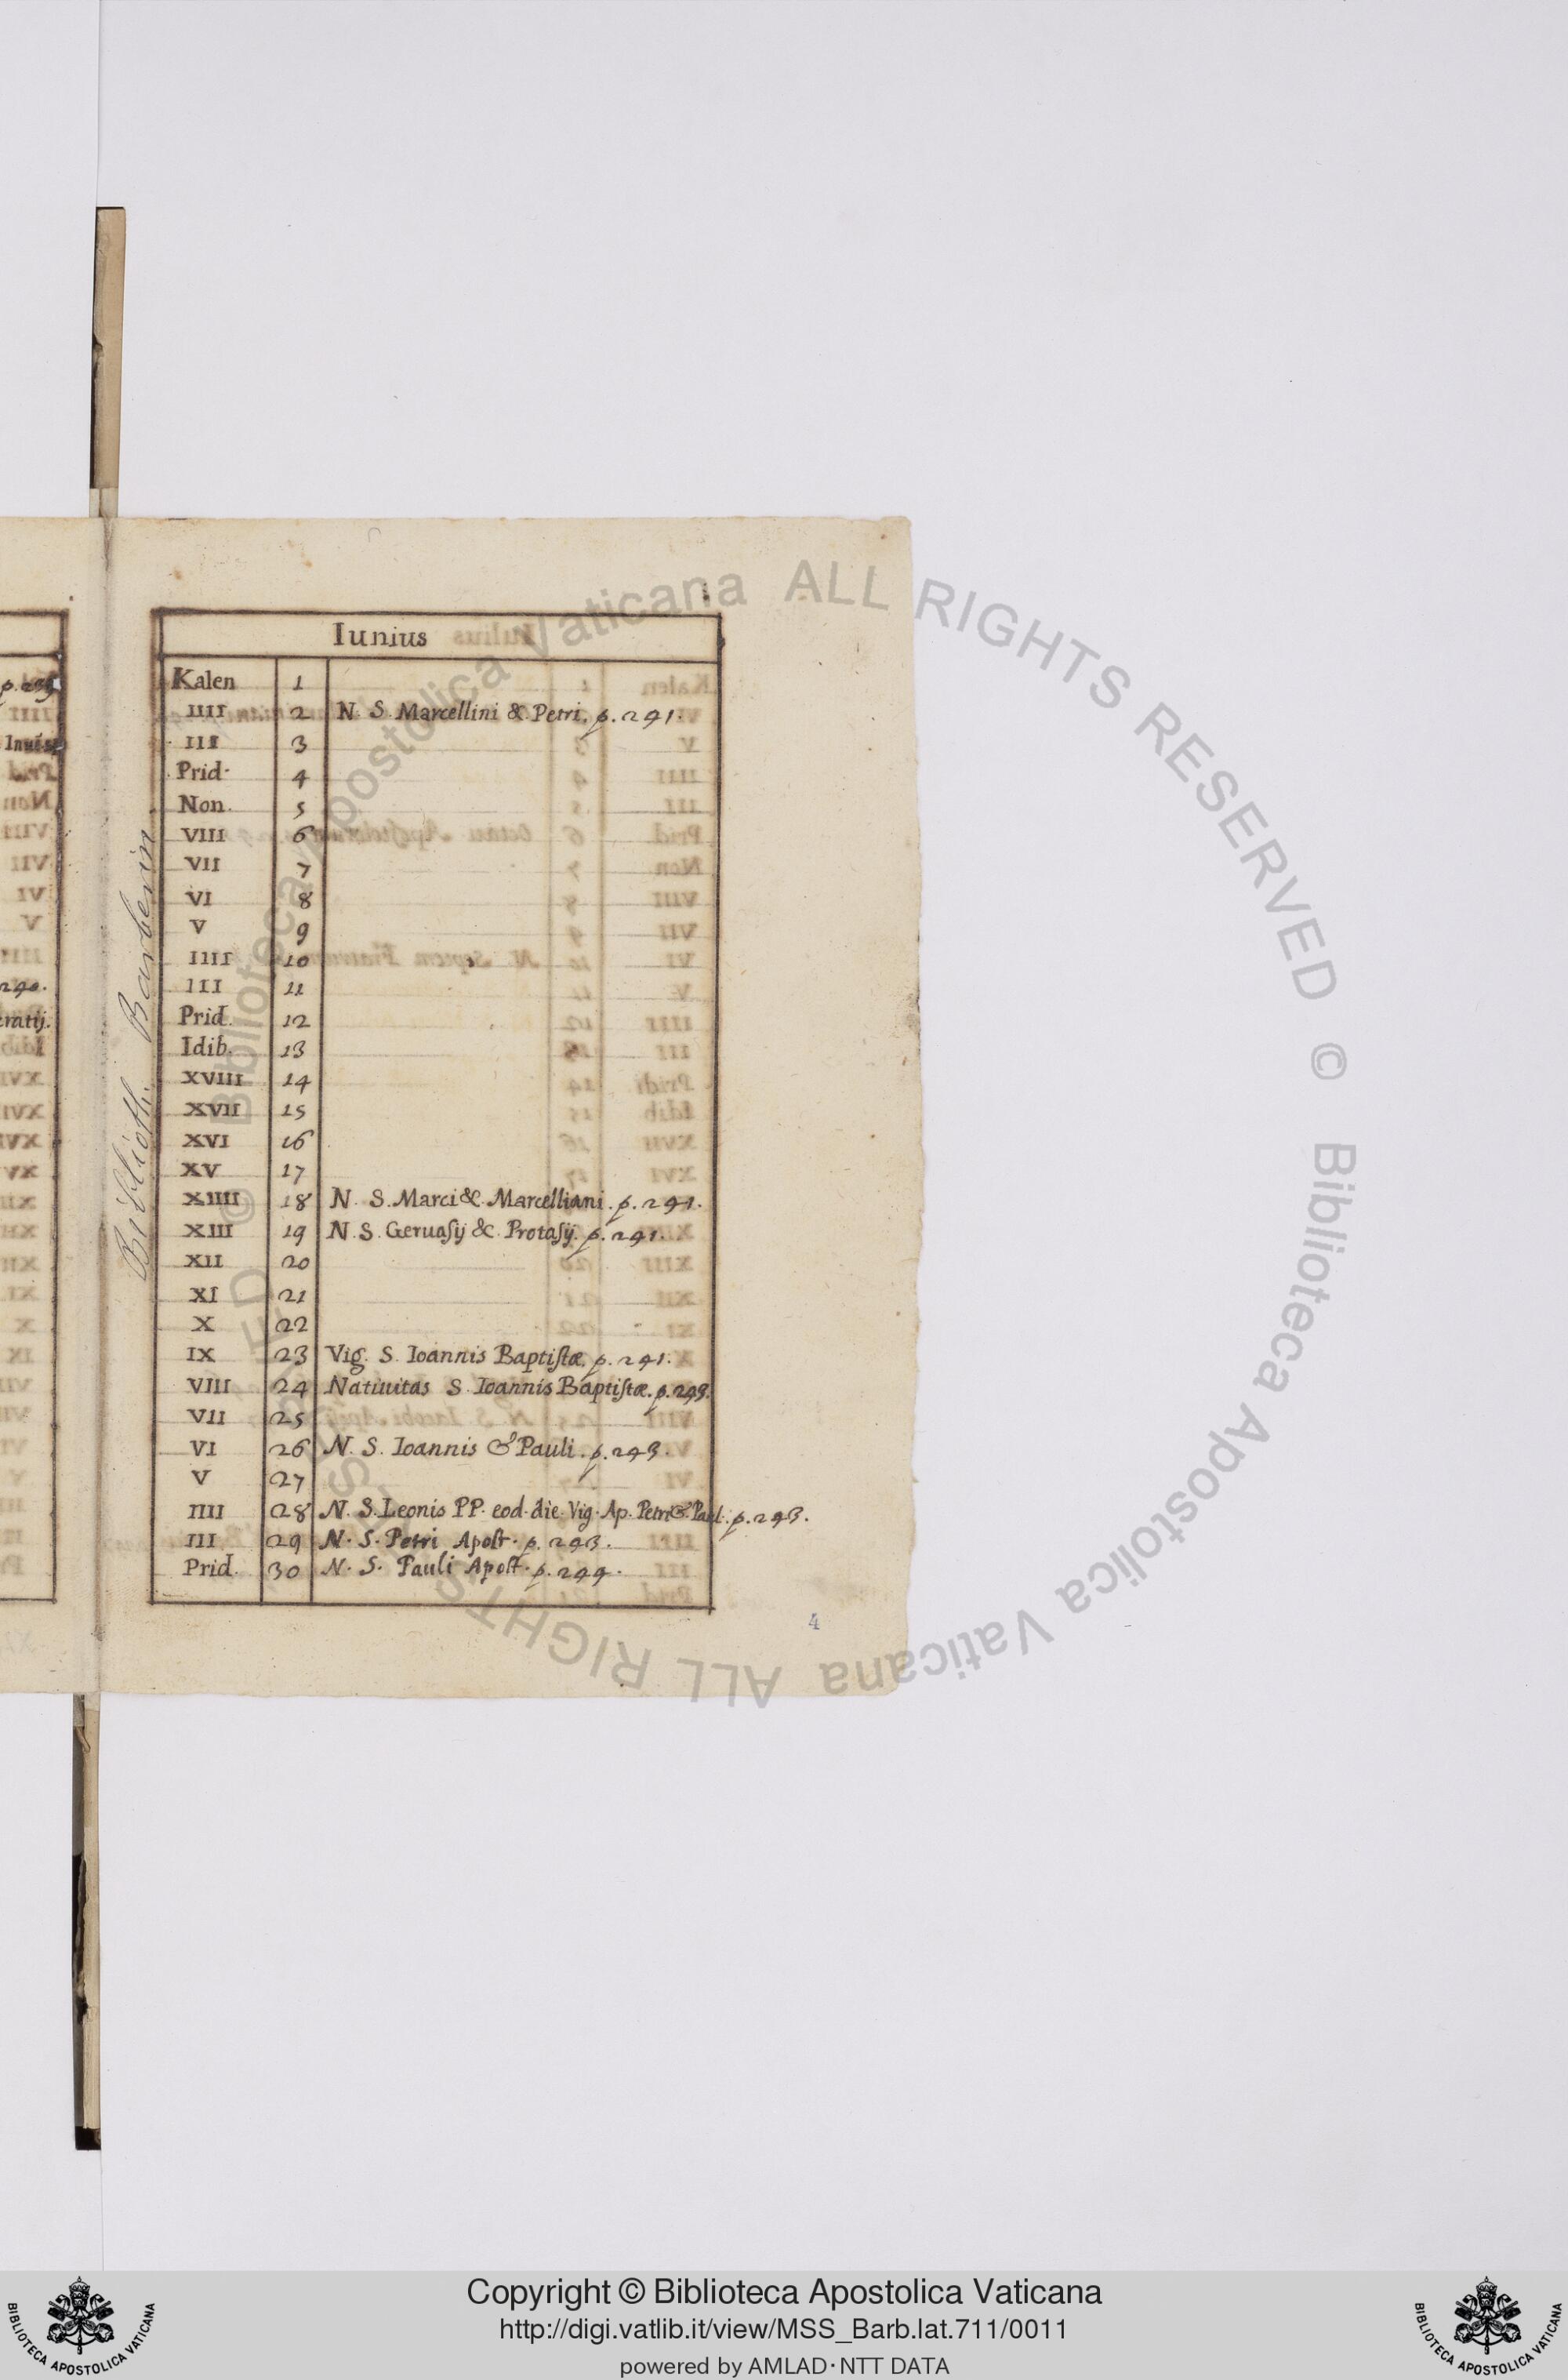 Iunius
Kalen 1
IIII 2 N. S. Marcellini & Petri. p. 241.
III 3
Prid. 4
Non. 5
VIII 6
VII 7
VI 8
V 9
IIII 10
III 11
Prid. 12
Idib. 13
XVIII 14
XVII 15
XVI 16
XV 17
XIIII 18 N. S. Marci &. Marcelliani. p. 241.
XIII 19 N. S. Geruaſij &. Protaſij. p. 241.
XII 20
XI 21
X 22
IX 23 Vig. S. Ioannis Baptiſtæ. p. 241.
VIII 24 Natiuitas S. Ioannis Baptiſtæ. p. 243.
VII 25
VI 26 N. S. Ioannis & Pauli. p. 243.
V 27
IIII 28 N. S. Leonis PP. eod. die. Vig. Ap. Petri &. Paul. p. 243.
III 29 N. S. Petri Apoſt. p. 243.
Prid. 30 N. S. Pauli Apoſt. p. 244.
4
Biblioth. Barberin
© Biblioteca Apostolica Vaticana ALL RIGHTS RESERVED © Biblioteca Apostolica Vaticana ALL RIGHTS RESERVED
Copyright © Biblioteca Apostolica Vaticana
http://digi.vatlib.it/view/MSS_Barb.lat.711/0011
powered by AMLAD·NTT DATA
BIBLIOTECA APOSTOLICA VATICANA
BIBLIOTECA APOSTOLICA VATICANA